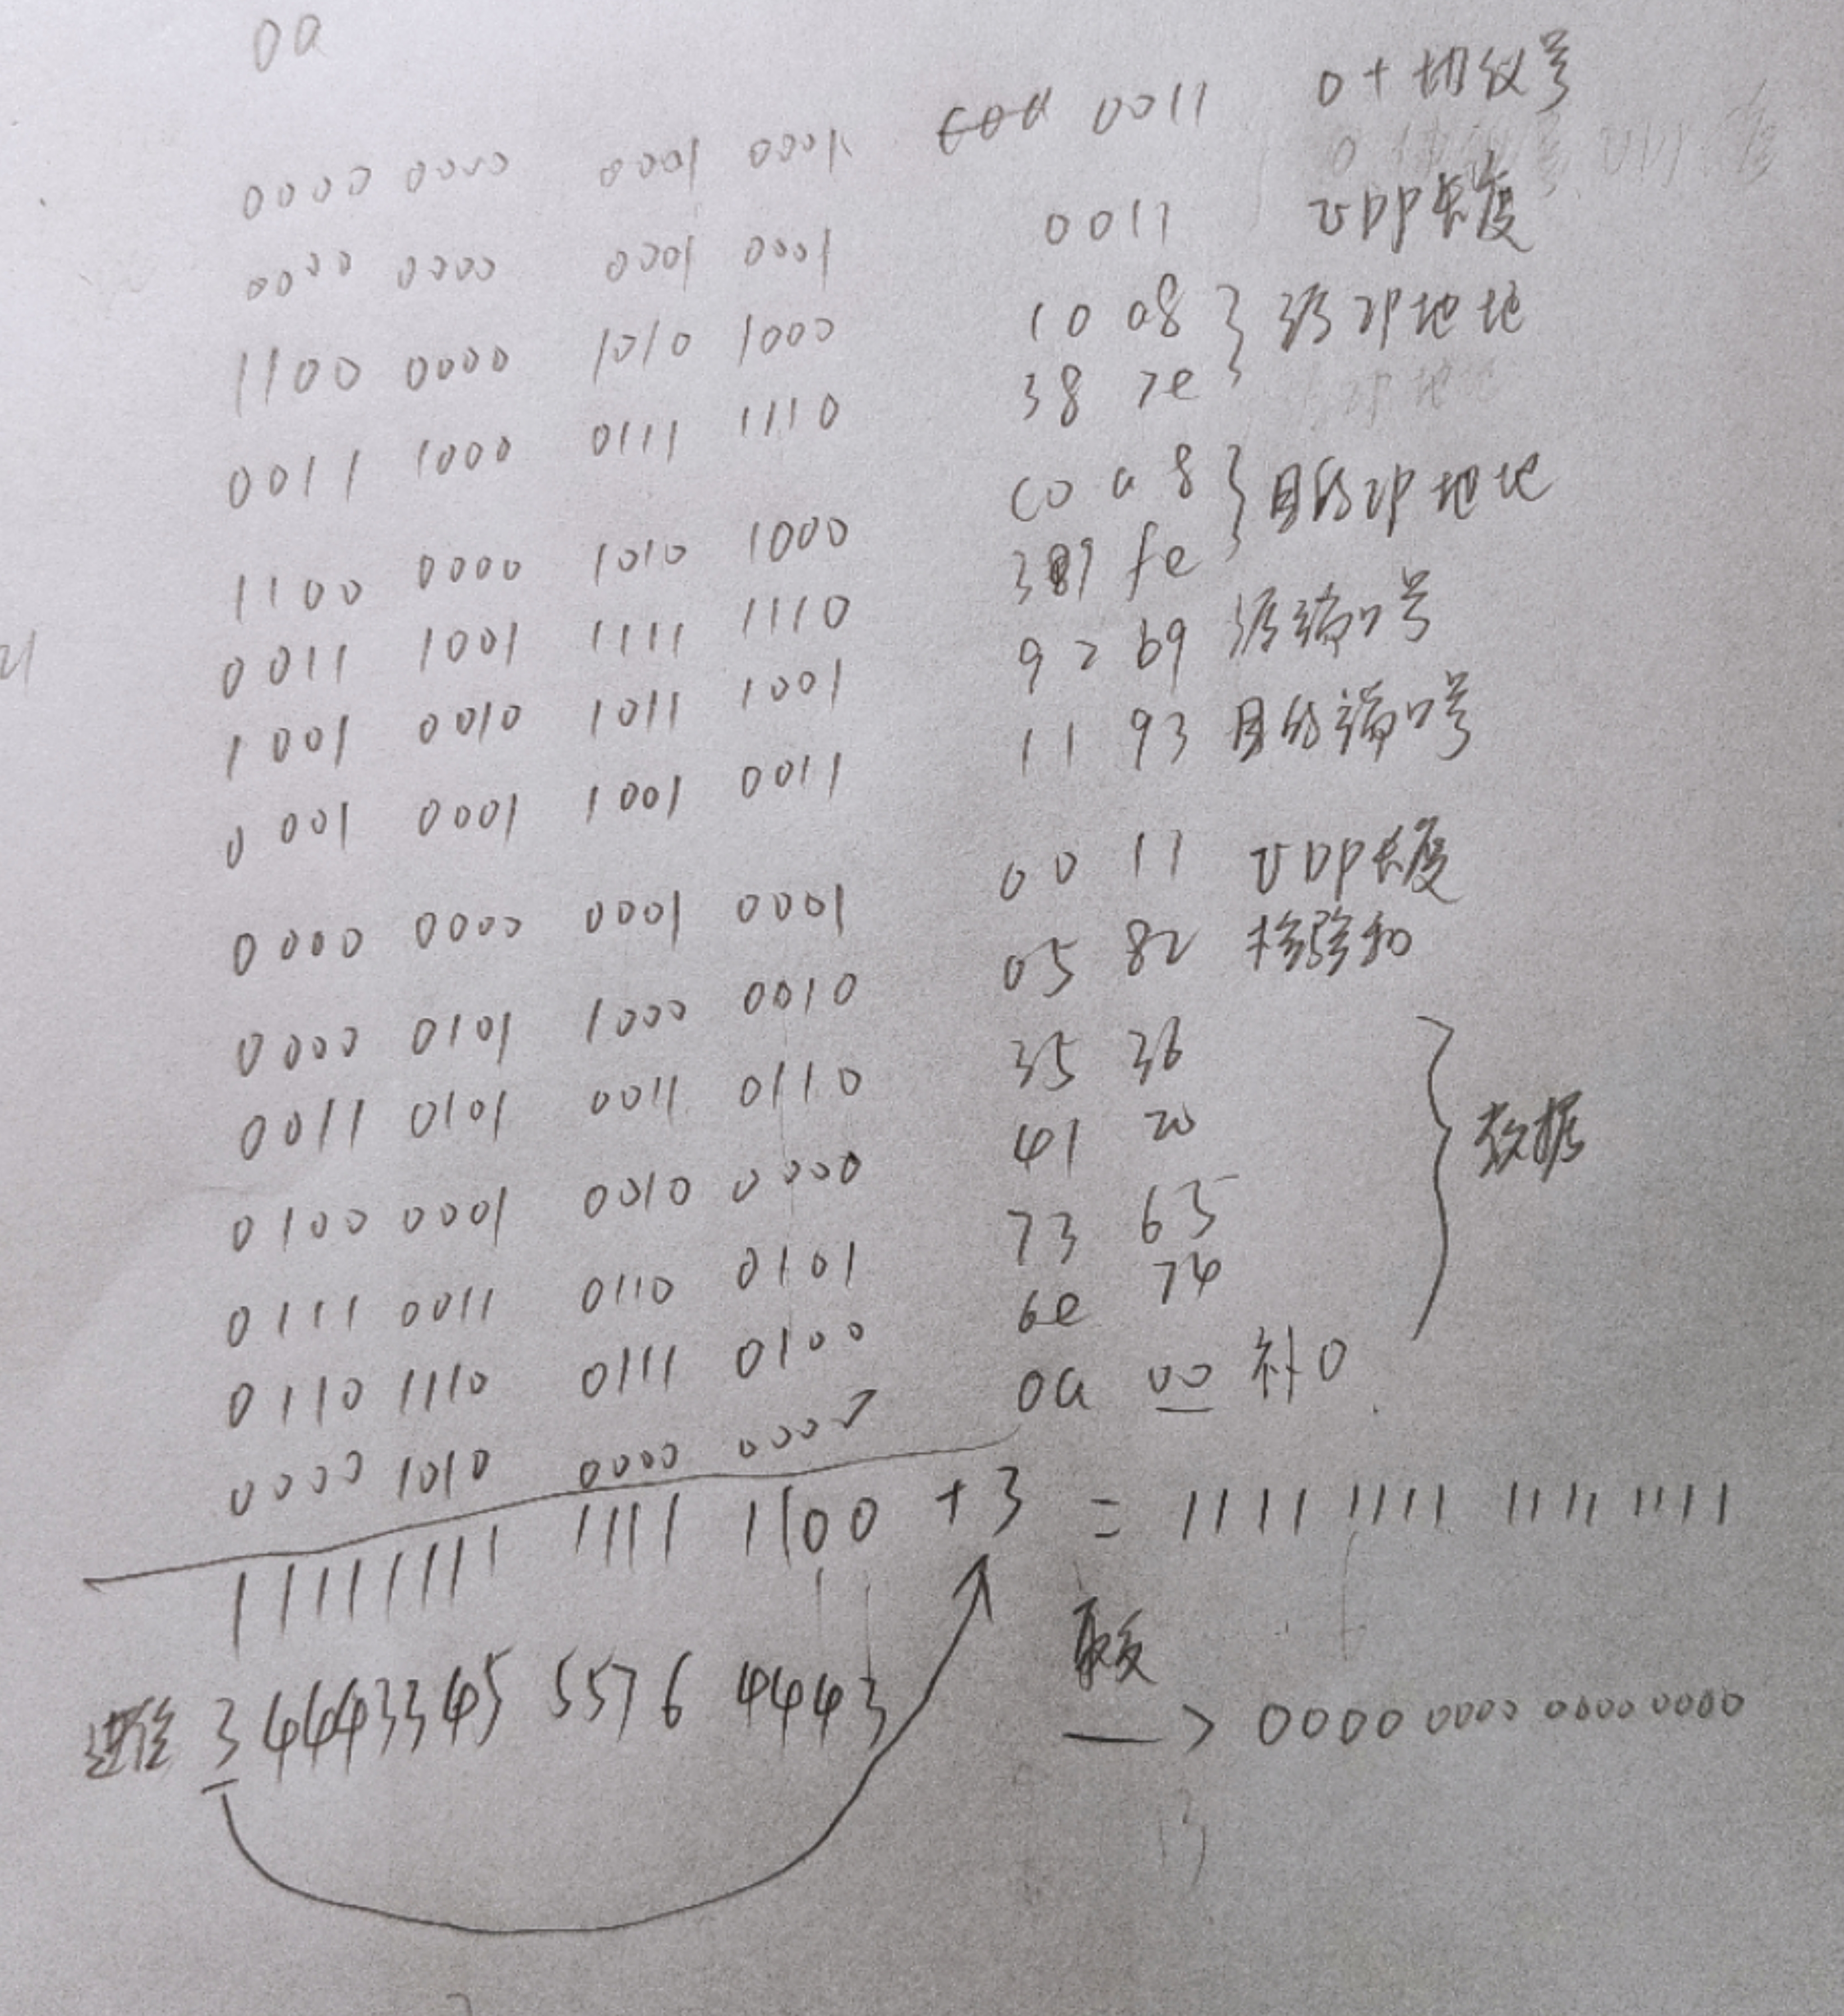 0a
0000 0000 0001 0001 0011 0+协议号
0000 0000 0001 0001 0011 UDP长度
1100 0000 1010 1000 10 a8 } 源IP地址
0011 1000 0111 1110 38 7e
1100 0000 1010 1000 c0 a8 } 目的IP地址
0011 1001 1111 1110 39 fe
1001 0010 1011 1001 92 b9 源端口号
0001 0001 1001 0011 11 93 目的端口号
0000 0000 0001 0001 00 11 UDP长度
0000 0101 1000 0010 05 82 检验和
0011 0101 0011 0110 35 36
0100 0001 0010 0000 41 20 } 数据
0111 0011 0110 0101 73 65
0110 1110 0111 0100 6e 74
0000 1010 0000 0000 0a 00 补0
11111111 1111 1100 + 3 = 1111 1111 1111 1111
进位 34443345 5576 4443 取反
—> 0000 0000 0000 0000